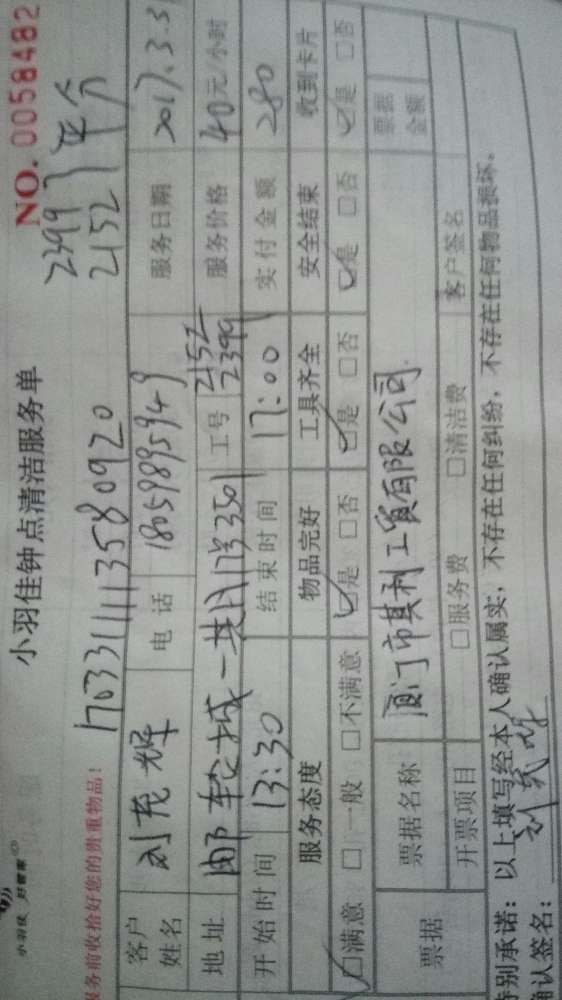 小羽佳 好管家
小羽佳钟点清洁服务单
NO. 0058482
服务前收拾好您的贵重物品!
17033111113580920
2399 2152 平分
客户姓名 刘茂辉 电话 18059895949 服务日期 2017.3.3
地址 邮轮城一期1号3501 工号 2152 2399 服务价格 40元/小时
开始时间 13:30 结束时间 17:00 实付金额 280
服务态度 物品完好 工具齐全 安全结束 收到卡片
☑满意 □一般 □不满意 ☑是 □否 ☑是 □否 ☑是 □否 ☑是 □否
票据 票据名称 厦门市其利工贸有限公司 票据金额
开票项目 □服务费 □清洁费 客户签名
特别承诺:以上填写经本人确认属实,不存在任何纠纷,不存在任何物品损坏。
确认签名: